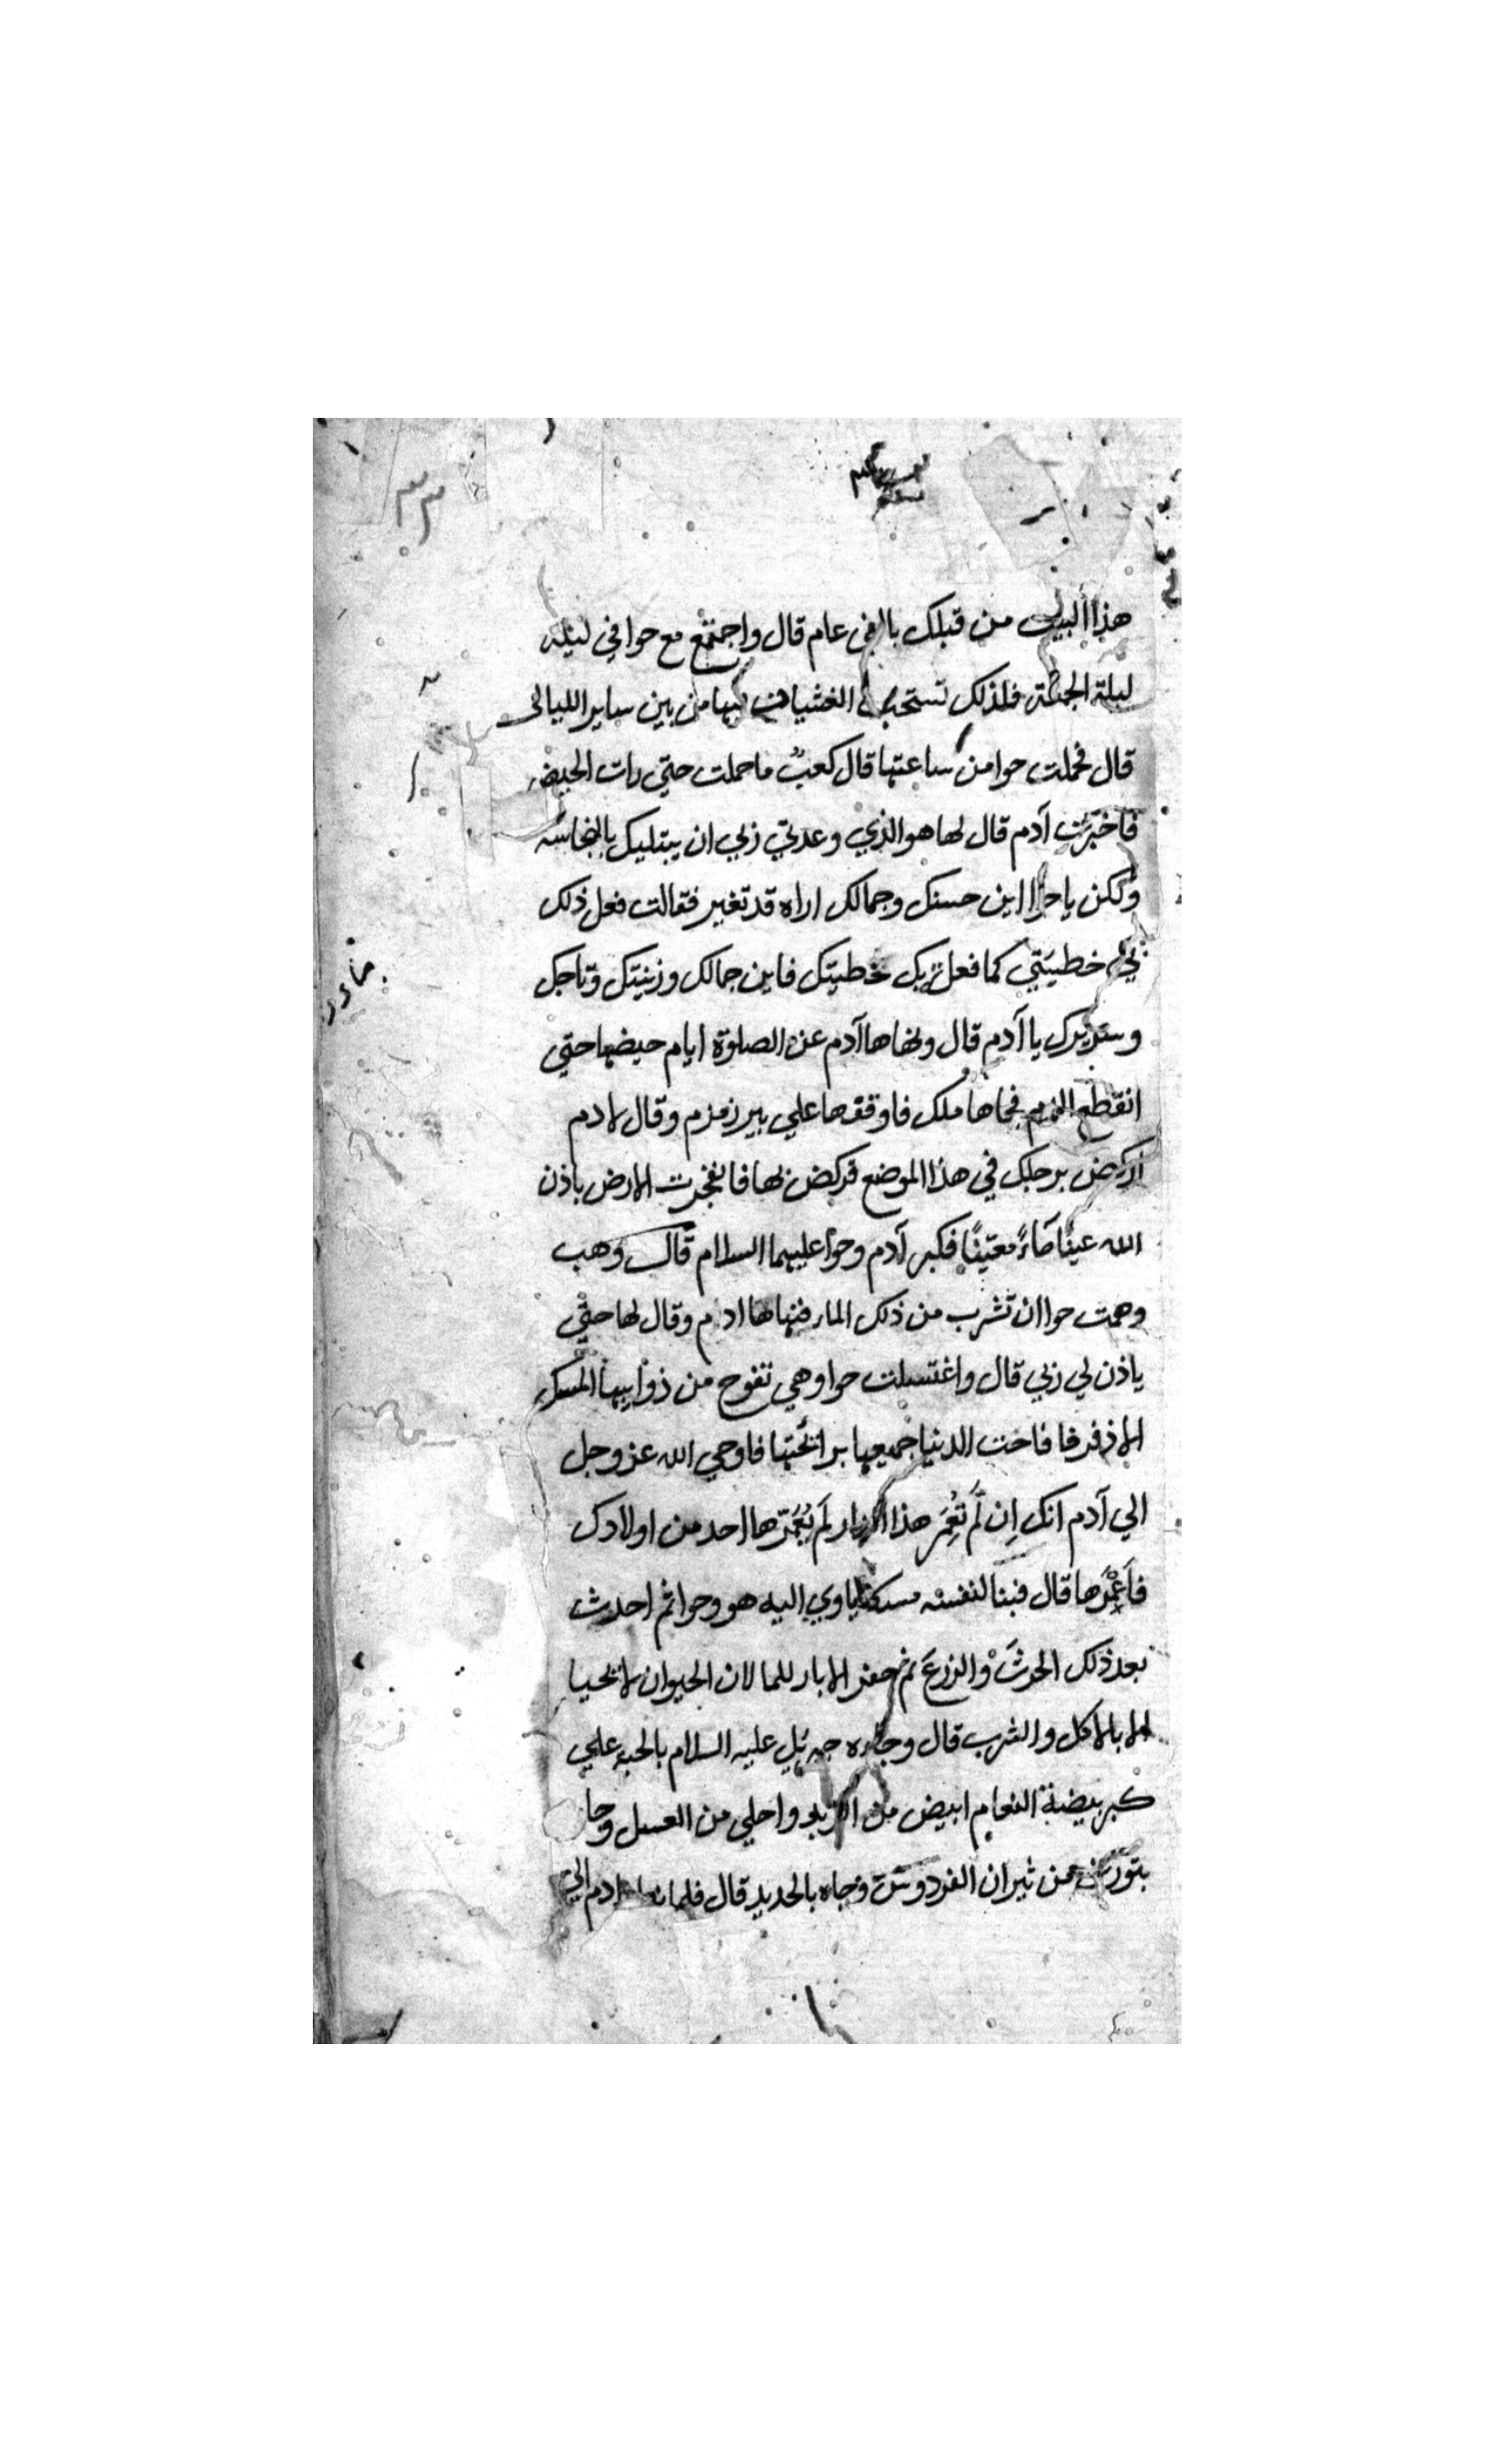 هذا البيت من قبلك بالفى عام قال واجتمع مع حوا في ليلة
ليلة الجمعة فلذلك تستحب الغشيان فيها من بين ساير الليالى
قال فحملت حوا من ساعتها قال كعبٌ ما حملت حتي رات الحيض
فاخبرت آدم قال لها هو الذي وعدني ربي ان يبتليك بالنجاسه
ولكن يا حوا اين حسنك وجمالك اراه قد تغير فقالت فعل ذلك
بي خطيئتي كما فعل بك خطيتك فاين جمالك وزينتك وتاجك
وسريرك يا آدم قال ونهاها آدم عن الصلوة ايام حيضها حتي
انقطع الدم فجاها ملك فاوقفها علي بير زمزم وقال لادم
اركض برجلك في هذا الموضع فركض بها فانفجرت الارض باذن
الله عينًا مَاءً معيّنًا فكبر آدم وحوا عليهما السلام قال وهب
وهمت حوا ان تشرب من ذلك الماء فنهاها ادم وقال لها حتي
ياذن لي ربي قال واغتسلت حوا وهي تفوح من ذوايبها المسك
الاذفر فا فاخت الدنيا جميعها برائحتها فاوحي الله عز وجل
الي آدم انك اِن لَّم تُعَمِر هذا الدار لَم يُعَمِّرها احد من اولادك
فاَعْمُرها قال فبنا لنفسه مسكنا ياوي اليه هو وحوا ثم احدث
بعد ذلك الحرثَ والزرعَ ثم حفر الابار للما لان الحيوان لا تحيا
الا بالاكل والشرب قال وجاءه جبرئيل عليه السلام بالحبة علي
كبر بيضة النعام ابيض من الزبد واحلي من العسل وجا
بثورين من ثيران الفردوس وجاه بالحديد قال فلما ادم الي